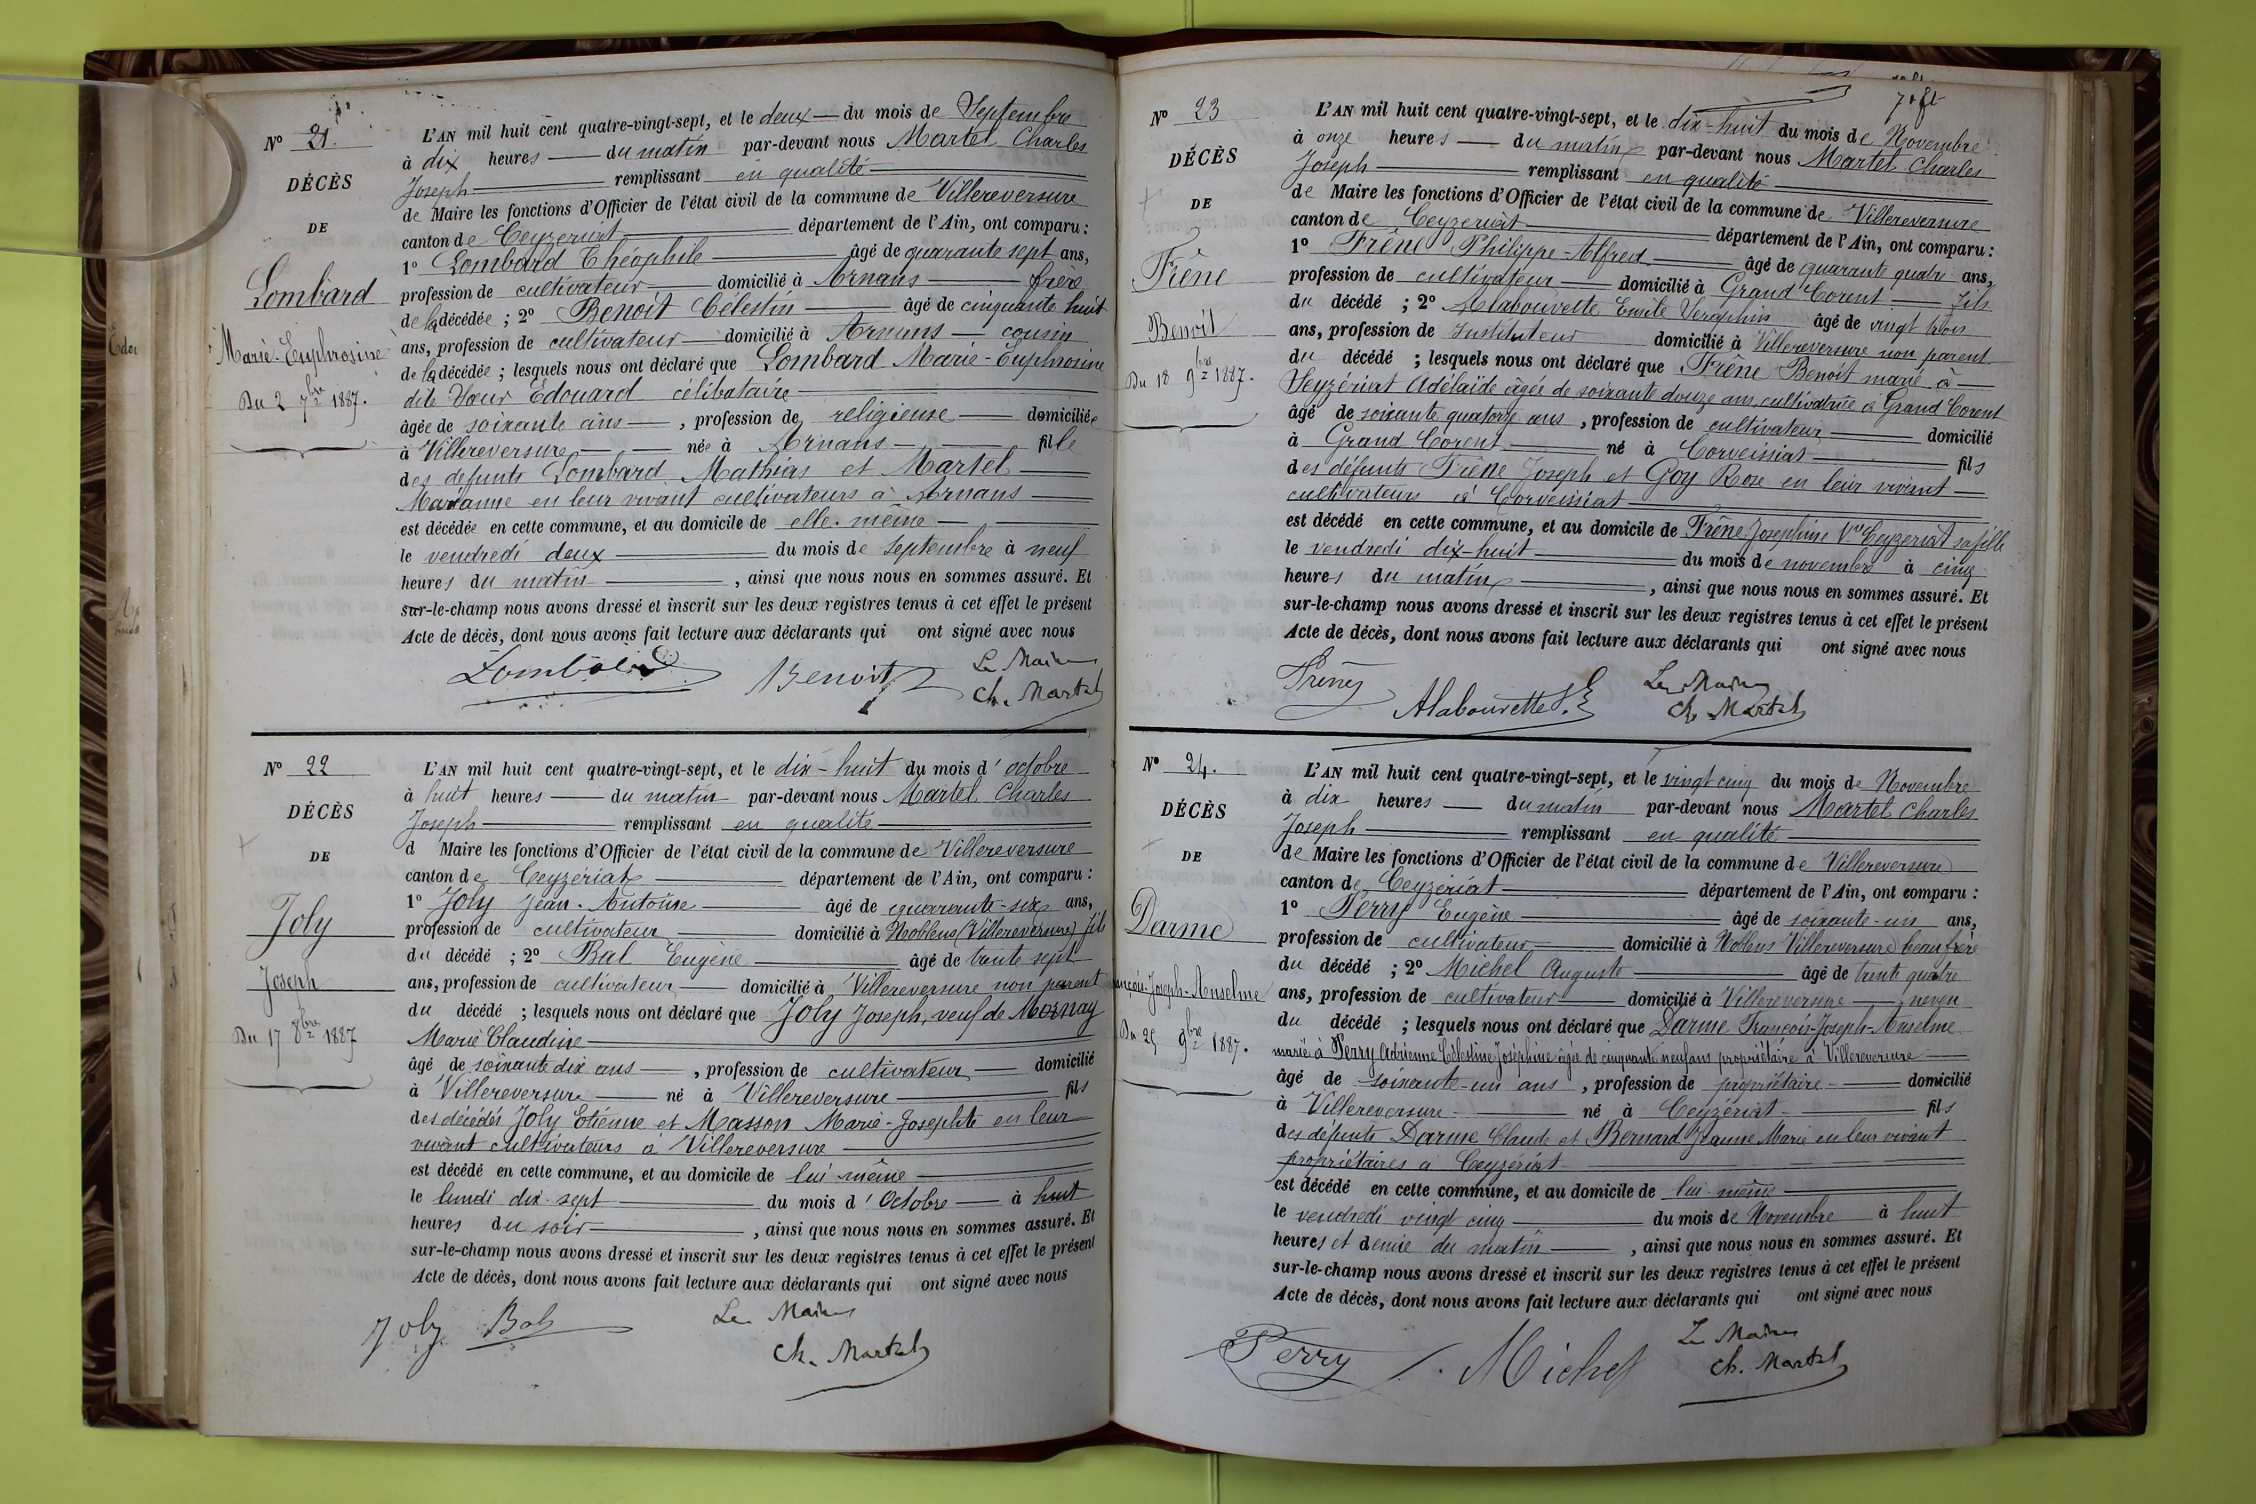 N° 21.
DÉCÈS
DE
Lombard
Marie-Euphrosine
Du 2 7bre 1887.
L'AN mil huit cent quatre-vingt-sept, et le deux du mois de Septembre
à dix heures du matin par-devant nous Martel Charles
Joseph remplissant en qualité
de Maire les fonctions d'Officier de l'état civil de la commune de Villereversure
canton de Ceyzeriat département de l'Ain, ont comparu :
1° Lombard Théophile âgé de quarante sept ans,
profession de cultivateur domicilié à Arnans frère
de la décédée ; 2° Benoit Célestin âgé de cinquante huit
ans, profession de cultivateur domicilié à Arnans cousin
de la décédée ; lesquels nous ont déclaré que Lombard Marie-Euphrosine
dite Sœur Edouard célibataire
âgée de soixante ans , profession de religieuse domiciliée
à Villereversure née à Arnans fille
des défunts Lombard Mathias et Martel
Marianne en leur vivant cultivateurs à Arnans
est décédée en cette commune, et au domicile de elle-même
le vendredi deux du mois de Septembre à neuf
heures du matin , ainsi que nous nous en sommes assuré. Et
sur-le-champ nous avons dressé et inscrit sur les deux registres tenus à cet effet le présent
Acte de décès, dont nous avons fait lecture aux déclarants qui ont signé avec nous
Lombard Benoit Le Maire
Ch. Martel
N° 22
DÉCÈS
DE
Joly
Joseph
Du 17 8bre 1887
L'AN mil huit cent quatre-vingt-sept, et le dix-huit du mois d'octobre
à huit heures du matin par-devant nous Martel Charles
Joseph remplissant en qualité
d Maire les fonctions d'Officier de l'état civil de la commune de Villereversure
canton de Ceyzeriat département de l'Ain, ont comparu :
1° Joly Jean-Antoine âgé de quarante-six ans,
profession de cultivateur domicilié à Noblens (Villereversure) fils
du décédé ; 2° Bal Eugène âgé de trente sept
ans, profession de cultivateur domicilié à Villereversure non parent
du décédé ; lesquels nous ont déclaré que Joly Joseph, veuf de Mornay
Marie Claudine
âgé de soixante dix ans , profession de cultivateur domicilié
à Villereversure né à Villereversure fils
des décédés Joly Etienne et Masson Marie-Josephte en leur
vivant cultivateurs à Villereversure
est décédé en cette commune, et au domicile de lui même
le lundi dix-sept du mois d'Octobre à huit
heures du soir , ainsi que nous nous en sommes assuré. Et
sur-le-champ nous avons dressé et inscrit sur les deux registres tenus à cet effet le présent
Acte de décès, dont nous avons fait lecture aux déclarants qui ont signé avec nous
Joly Bal Le Maire
Ch. Martel
N° 23
DÉCÈS
DE
Frêne
Benoit
Du 18 9bre 1887.
L'AN mil huit cent quatre-vingt-sept, et le dix-huit du mois de Novembre
à onze heures du matin par-devant nous Martel Charles
Joseph remplissant en qualité
de Maire les fonctions d'Officier de l'état civil de la commune de Villereversure
canton de Ceyzeriat département de l'Ain, ont comparu :
1° Frêne Philippe-Alfred âgé de quarante quatre ans,
profession de cultivateur domicilié à Grand Corent fils
du décédé ; 2° Alabouvette Emile Séraphin âgé de vingt trois
ans, profession de Instituteur domicilié à Villereversure non parent
du décédé ; lesquels nous ont déclaré que Frêne Benoit marié à
Seyzériat Adélaïde âgée de soixante douze ans, cultivatrice à Grand Corent
âgé de soixante quatorze ans , profession de cultivateur domicilié
à Grand Corent né à Corveissiat fils
des défunts Frêne Joseph et Goy Rose en leur vivant
cultivateurs à Corveissiat
est décédé en cette commune, et au domicile de Frêne Joséphine Vve Ceyzeriat sa fille
le vendredi dix-huit du mois de novembre à cinq
heures du matin , ainsi que nous nous en sommes assuré. Et
sur-le-champ nous avons dressé et inscrit sur les deux registres tenus à cet effet le présent
Acte de décès, dont nous avons fait lecture aux déclarants qui ont signé avec nous
Frêne Alabouvette Le Maire
Ch. Martel
N° 24.
DÉCÈS
DE
Darme
François-Joseph-Anselme
Du 25 9bre 1887.
L'AN mil huit cent quatre-vingt-sept, et le vingt cinq du mois de Novembre
à dix heures du matin par-devant nous Martel Charles
Joseph remplissant en qualité
de Maire les fonctions d'Officier de l'état civil de la commune de Villereversure
canton de Ceyzériat département de l'Ain, ont comparu :
1° Perry Eugène âgé de soixante-un ans,
profession de cultivateur domicilié à Noblens Villereversure beau frère
du décédé ; 2° Michel Auguste âgé de trente quatre
ans, profession de cultivateur domicilié à Villereversure neveu
du décédé ; lesquels nous ont déclaré que Darme François-Joseph-Anselme
marié à Perry Adrienne Célestine Joséphine âgée de cinquante neuf ans propriétaire à Villereversure
âgé de soixante-un ans , profession de propriétaire domicilié
à Villereversure né à Ceyzériat fils
des défunts Darme Claude et Bernard Jeanne Marie en leur vivant
propriétaires à Ceyzériat
est décédé en cette commune, et au domicile de lui-même
le vendredi vingt cinq du mois de Novembre à huit
heures et demie du matin , ainsi que nous nous en sommes assuré. Et
sur-le-champ nous avons dressé et inscrit sur les deux registres tenus à cet effet le présent
Acte de décès, dont nous avons fait lecture aux déclarants qui ont signé avec nous
Perry Michel Le Maire
Ch. Martel